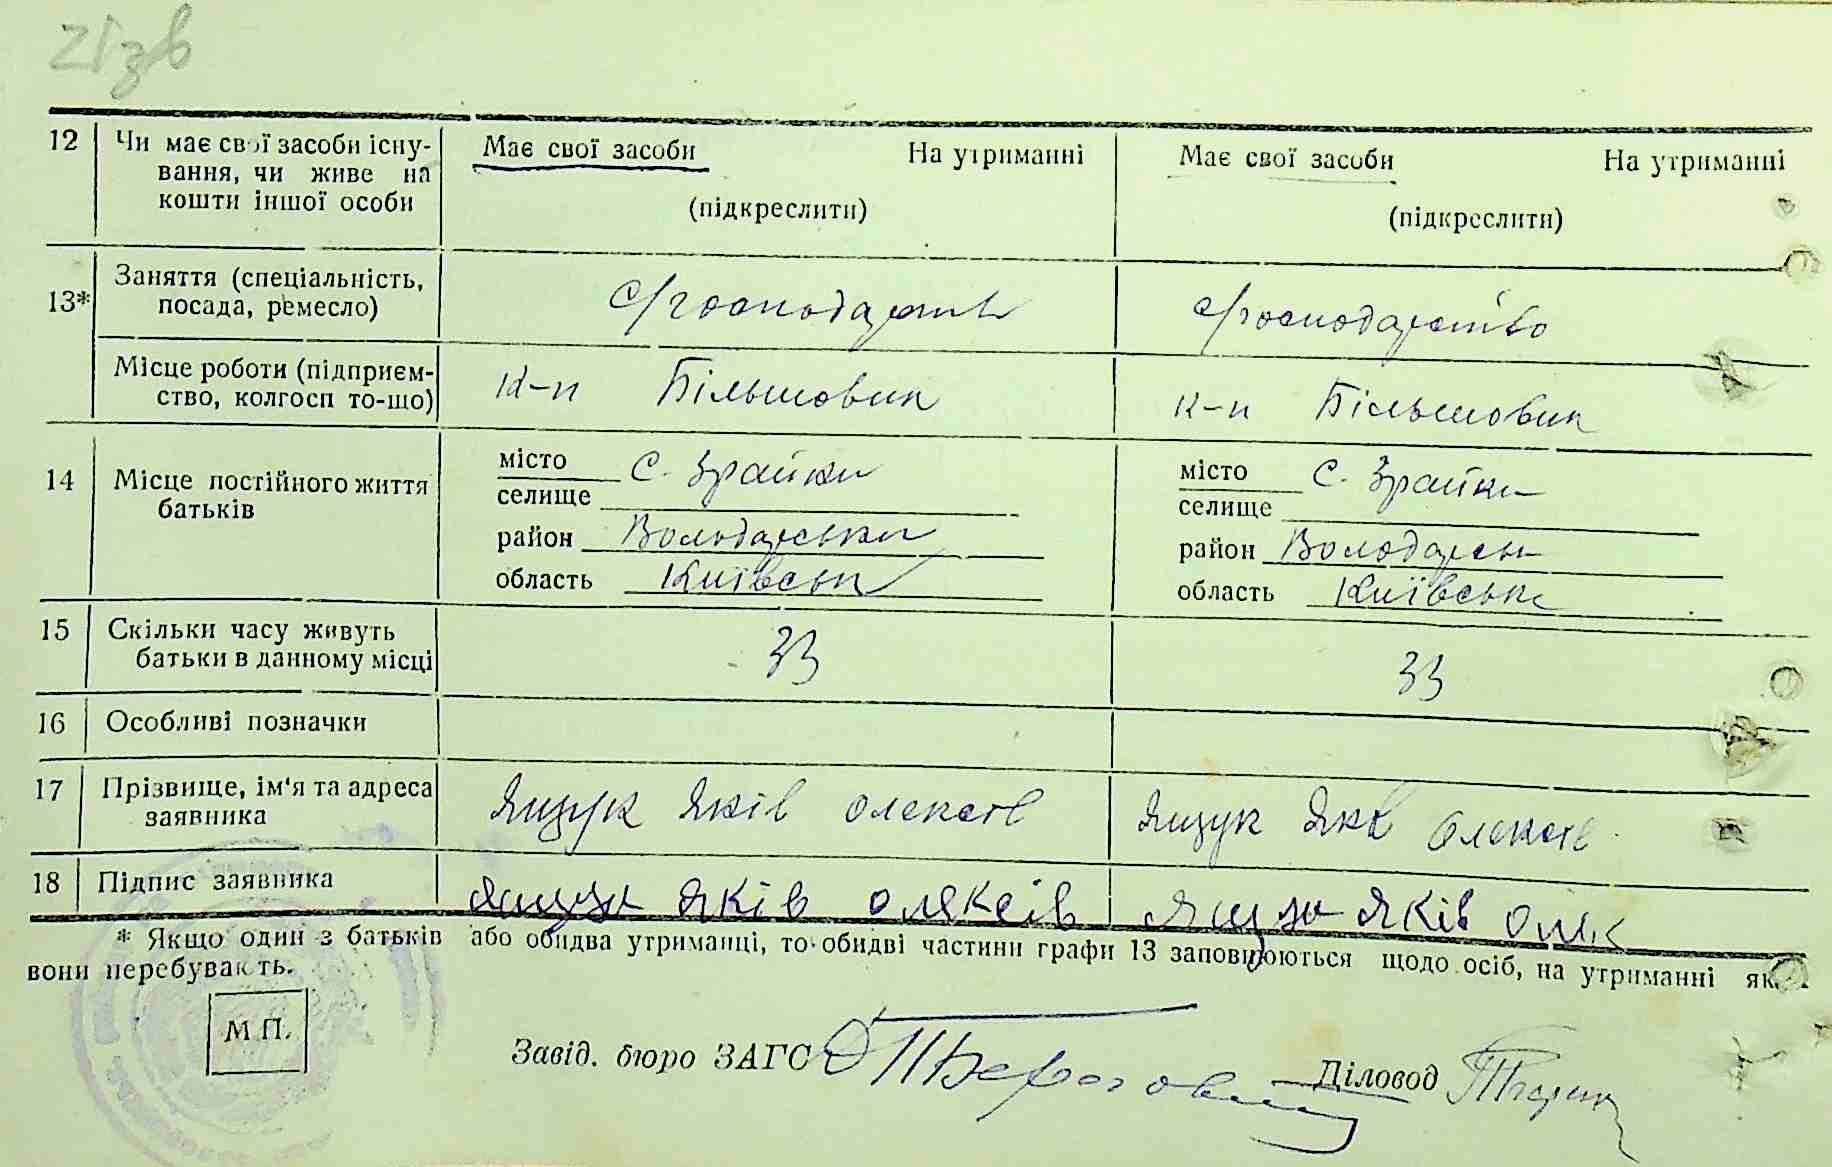 21зв
12 Чи має свої засоби існу- Має свої засоби На утриманні Має свої засоби На утриманні
вання, чи живе на
кошти іншої особи (підкреслити) (підкреслити)
13* Заняття (спеціальність,
посада, ремесло) с/господарств с/господарство
Місце роботи (підприєм- к-п Більшовик к-п Більшовик
ство, колгосп то-що)
14 Місце постійного життя місто с. Зрайки місто с. Зрайки
батьків селище селище
район Володарськи район Володарськ
область Київськ область Київськ
15 Скільки часу живуть 33 33
батьки в данному місці
16 Особливі позначки
17 Прізвище, ім'я та адреса Ящук Яків Олексів Ящук Яків Олексів
заявника
18 Підпис заявника Ящук Яків Оляксів Ящук Яків Оляк
* Якщо один з батьків або обидва утриманці, то обидві частини графи 13 заповнюються щодо осіб, на утриманні яких
вони перебувають.
М.П.
Завід. бюро ЗАГС Діловод